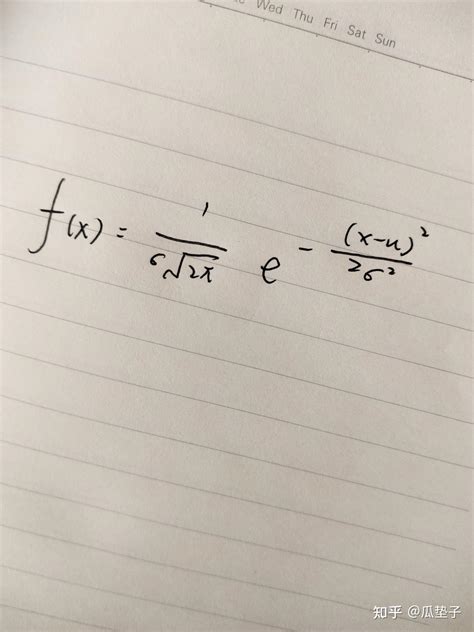 Wed Thu Fri Sat Sun
f(x) = 1/(σ√2π) e^-(x-u)²/2σ²
知乎 @瓜垫子